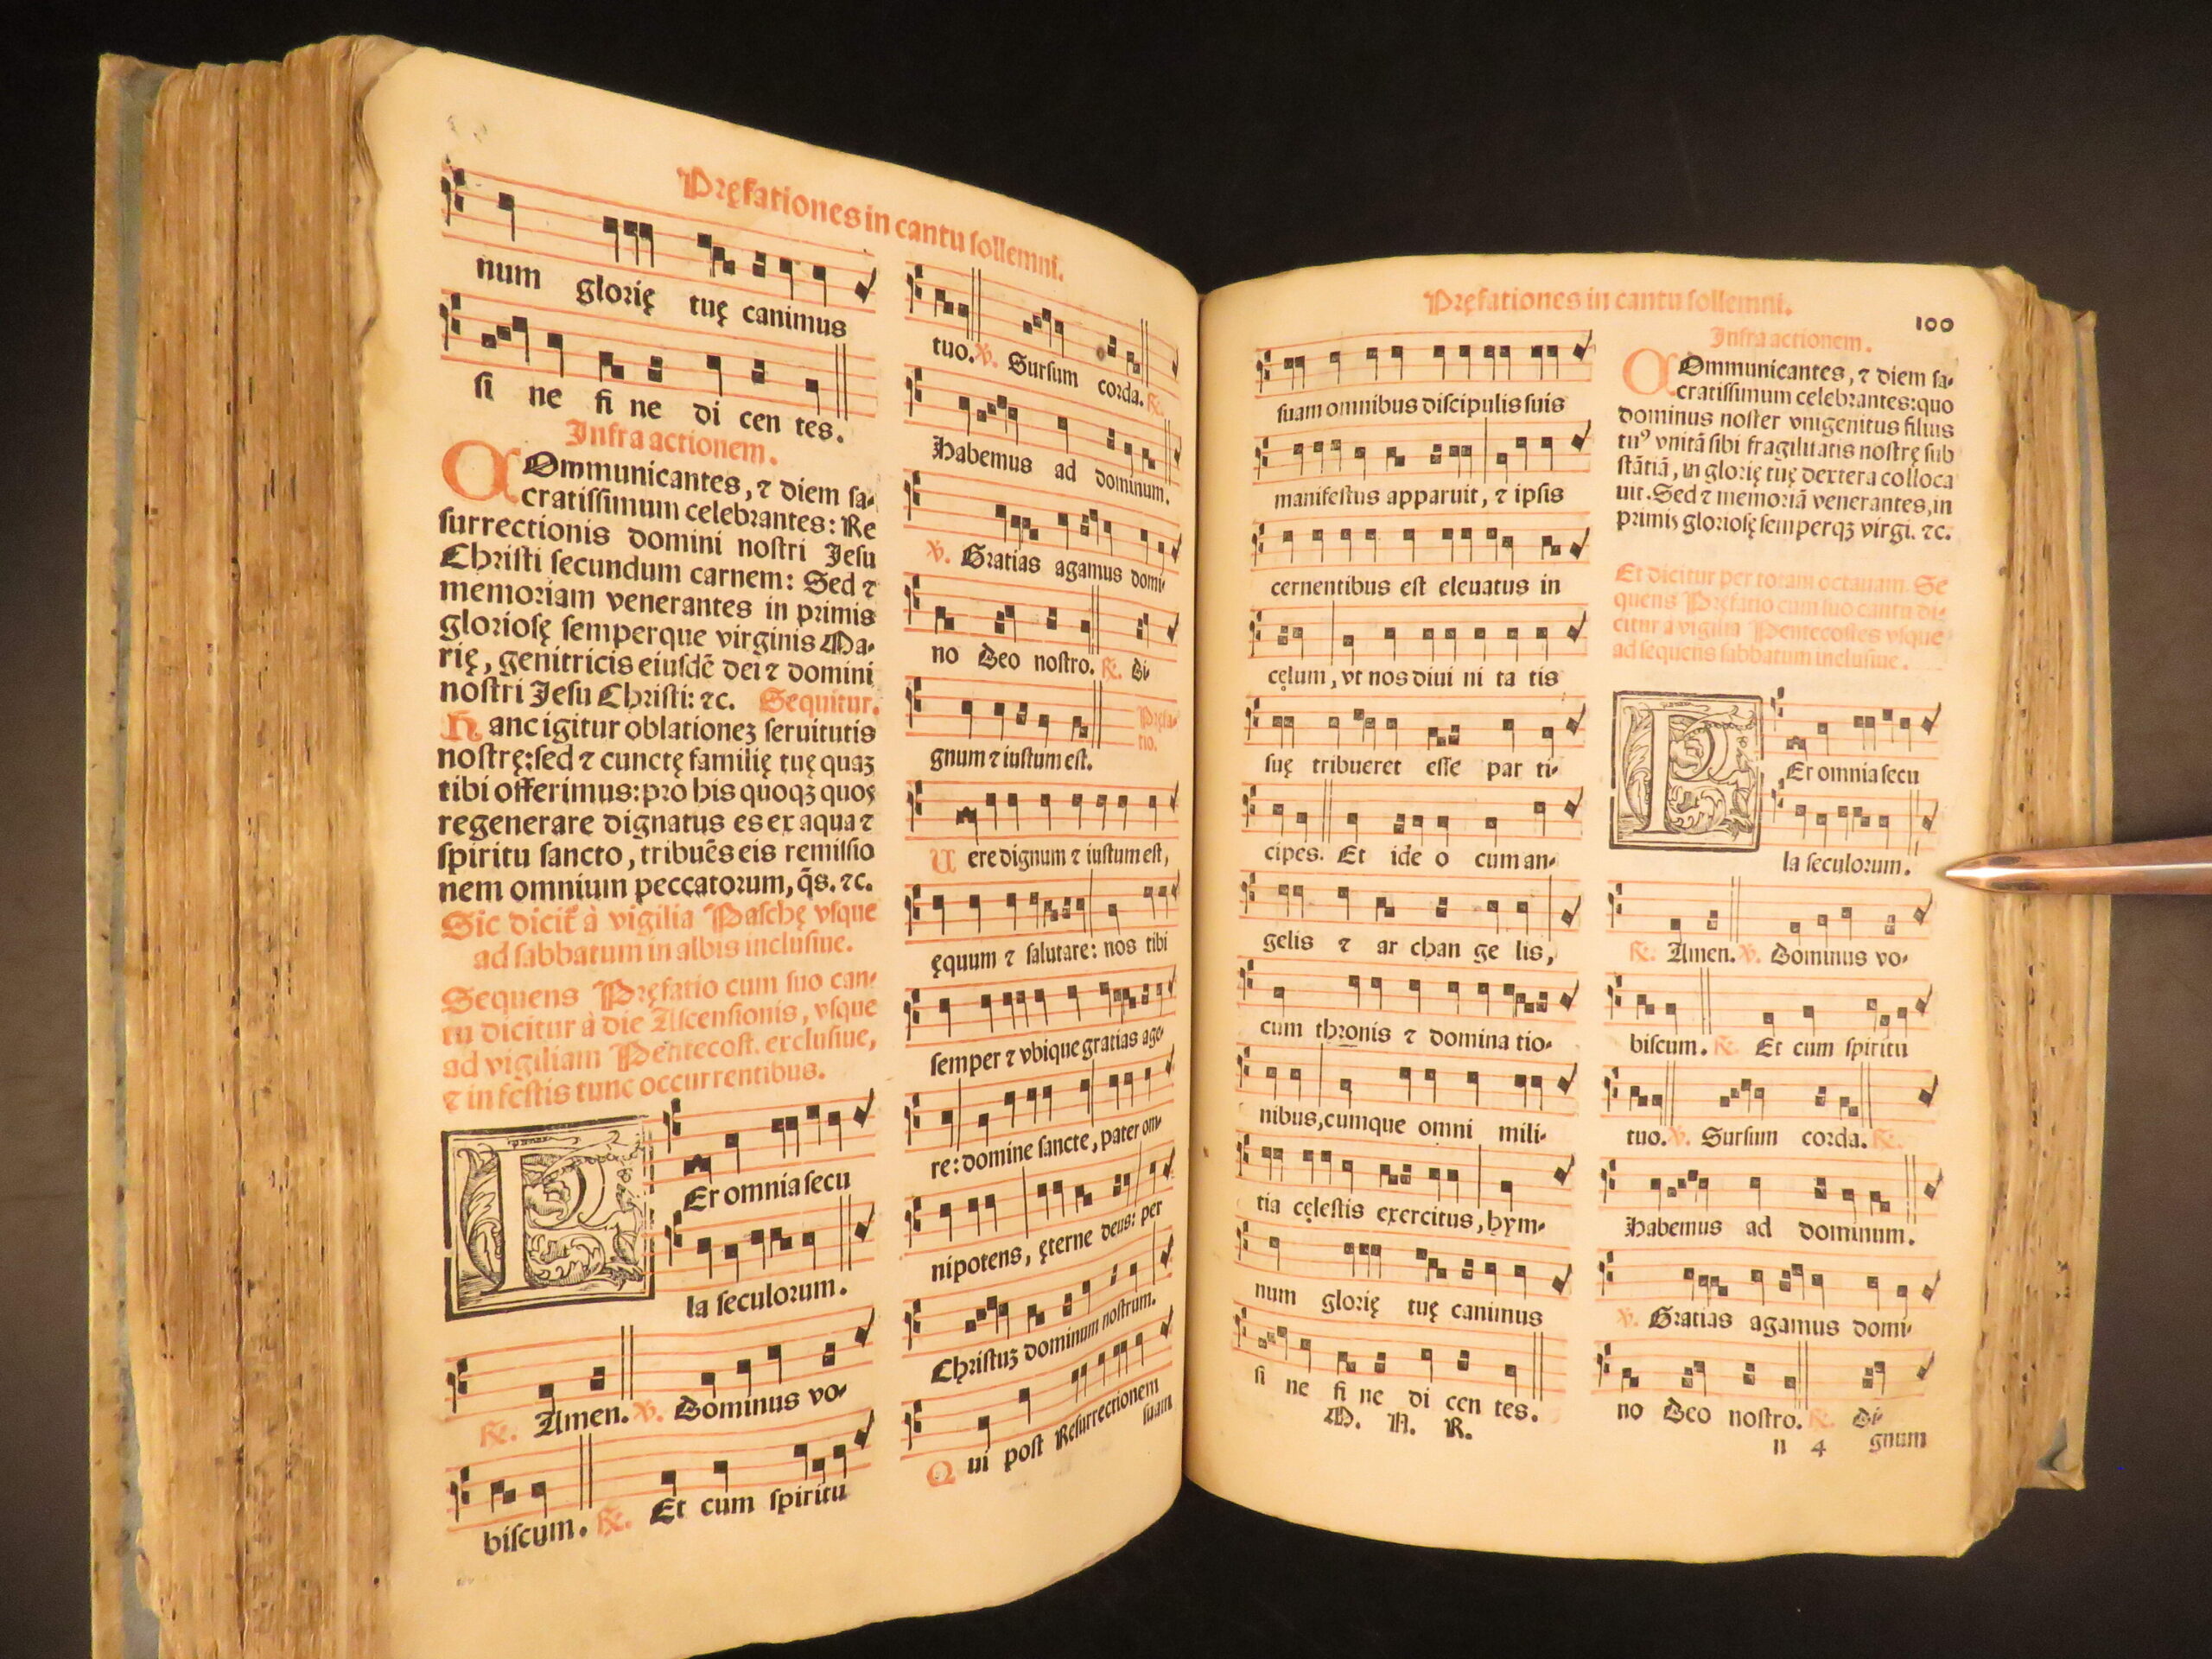 Pręfationes in cantu sollemni.
num glorię tuę canimus
si ne fi ne di cen tes.
Infra actionem.
COmmunicantes, ⁊ diem sa-
cratissimum celebrantes: Re
surrectionis domini nostri Jesu
Christi secundum carnem: Sed ⁊
memoriam venerantes in primis
gloriosę semperque virginis Ma-
rię, genitricis eiusdē dei ⁊ domini
nostri Jesu Christi: ⁊c. Sequitur.
Hanc igitur oblationeꝫ seruitutis
nostrę: sed ⁊ cunctę familię tuę quaꝫ
tibi offerimus: pro his quoqꝫ quos
regenerare dignatus es ex aqua ⁊
spiritu sancto, tribuēs eis remissio
nem omnium peccatorum, q̄s. ⁊c.
Sic dicit̃ à vigilia Paschę vsque
ad sabbatum in albis inclusiue.
Sequens Pręfatio cum suo can-
tu dicitur à die Ascensionis, vsque
ad vigiliam Pentecost. exclusiue,
⁊ in festis tunc occurrentibus.
PEr omnia secu
la seculorum.
℟. Amen. ℣. Dominus vo-
biscum. ℟. Et cum spiritu
tuo. ℣. Sursum corda. ℟.
Habemus ad dominum.
℣. Gratias agamus domi-
no Deo nostro. ℟. Di-
gnum ⁊ iustum est. Pręfa-
tio.
Uere dignum ⁊ iustum est,
ęquum ⁊ salutare: nos tibi
semper ⁊ vbique gratias age-
re: domine sancte, pater om-
nipotens, ęterne deus: per
Christuꝫ dominum nostrum.
Qui post Resurrectionem
suam
Pręfationes in cantu sollemni.
100
suam omnibus discipulis suis
manifestus apparuit, ⁊ ipsis
cernentibus est eleuatus in
cęlum, vt nos diui ni ta tis
suę tribueret esse par ti-
cipes. Et ide o cum an-
gelis ⁊ ar chan ge lis,
cum thronis ⁊ domina tio-
nibus, cumque omni mili-
tia cęlestis exercitus, hym-
num glorię tuę canimus
si ne fi ne di cen tes.
M. N. R.
Infra actionem.
COmmunicantes, ⁊ diem sa-
cratissimum celebrantes: quo
dominus noster vnigenitus filius
tuꝰ vnitā sibi fragilitatis nostrę sub
stātiā, in glorię tuę dextera colloca
uit. Sed ⁊ memoriā venerantes, in
primis gloriosę semperqꝫ virgi. ⁊c.
Et dicitur per totam octauam. Se
quens Pręfatio cum suo cantu di-
citur a vigilia Pentecostes vsque
ad sequens sabbatum inclusiue.
PEr omnia secu
la seculorum.
℟. Amen. ℣. Dominus vo-
biscum. ℟. Et cum spiritu
tuo. ℣. Sursum corda. ℟.
Habemus ad dominum.
℣. Gratias agamus domi-
no Deo nostro. ℟. Di-
n 4 gnum